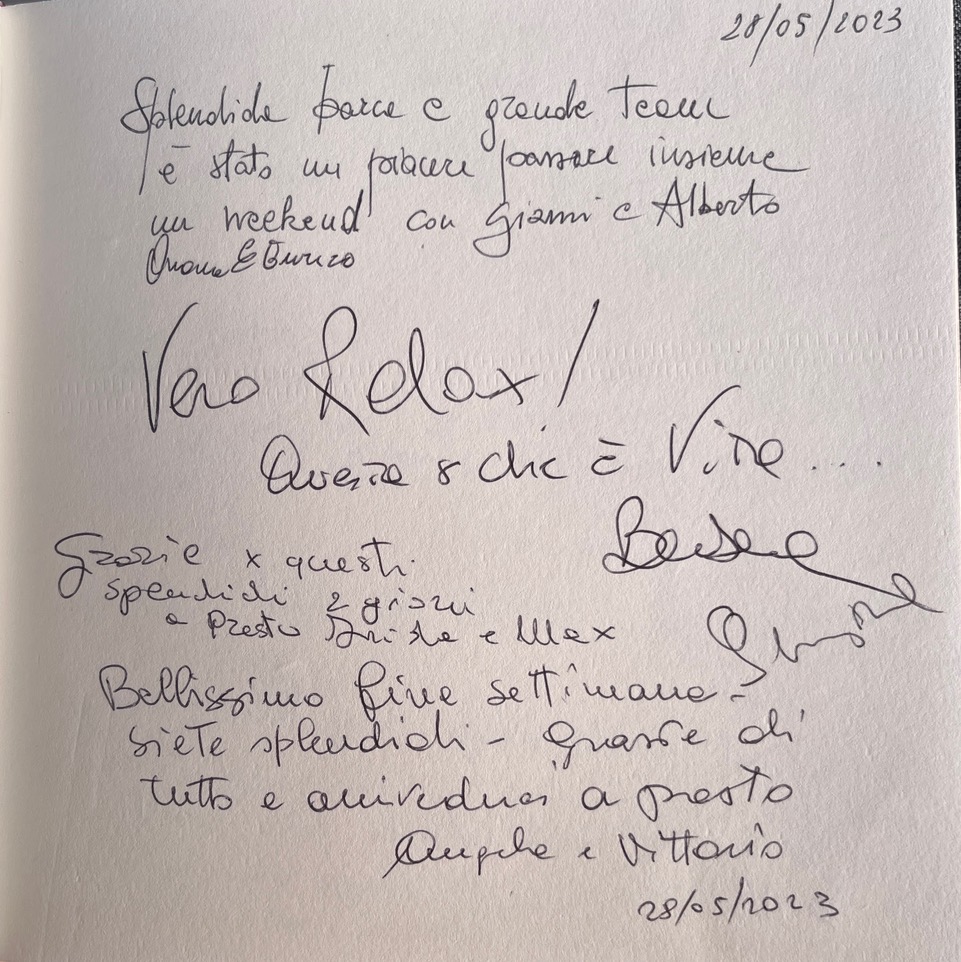 28/05/2023
Splendida barca e grande Team
è stato un piacere passare insieme
un weekend con Gianni e Alberto
Vero Relax!
Questa s che è Vita....
Grazie x questi
splendidi 2 giorni
a Presto e Max
Bellissimo fine settimana -
siete splendidi - grazie di
tutto e arrivederci a presto
Angela e Vittorio
28/05/2023